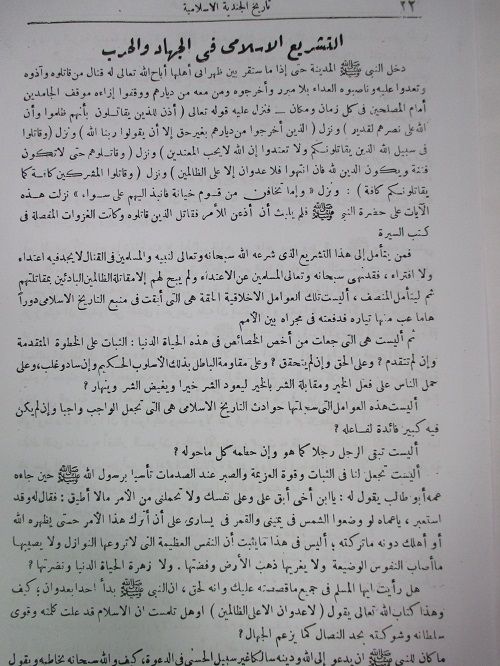 ٢٢ تاريخ الجندية الاسلامية
التشريع الاسلامى فى الجهاد والحرب
دخل النبي ﷺ المدينة حتى إذا ما ستقر بين ظهرانى أهلها أباح الله تعالى له قتال من قاتلوه وآذوه
وتعدوا عليه وناصبوه العداء بلا مبرر وأخرجوه ومن معه من ديارهم ووقفوا إزاءه موقف الجامدين
أمام المصلحين فى كل زمان ومكان ــ فنزل عليه قوله تعالى ( أذن للذين يقاتلون بأنهم ظلموا وأن
الله على نصرهم لقدير ) ونزل ( الذين أخرجوا من ديارهم بغير حق إلا أن يقولوا ربنا الله ) ونزل (وقاتلوا
فى سبيل الله الذين يقاتلونكم ولا تعتدوا إن الله لا يحب المعتدين ) ونزل ( وقاتلوهم حتى لا تكون
فتنة ويكون الدين لله فان انتهوا فلا عدوان إلا على الظالمين ) ونزل ( وقاتلوا المشركين كافة كما
يقاتلونكم كافة ) : ونزل « وإما تخافن من قوم خيانة فانبذ اليهم على سواء » نزلت هذه
الآيات على حضرة النبي ﷺ فلم يلبث أن أذعن للأمر فقاتل الذين قاتلوه وكانت الغزوات المفصلة فى
كتب السيرة
فمن يتأمل إلى هذا التشريع الذى شرعه الله سبحانه وتعالى لنبيه والمسلمين فى القتال لا يجد فيه اعتداء
ولا افتراء ، فقد نهى سبحانه وتعالى المسلمين عن الاعتداء ولم يبح لهم إلا مقاتلة الظالمين البادئين بمقاتلتهم
ثم ليتأمل المنصف ، أليست تلك العوامل الاخلاقية الحقة هى التى أبقت فى منبع التاريخ الاسلامى دوراً
هاما عب منها تياره فدفعته فى مجراه بين الأمم
ثم أليست هى التى جعلت من أخص الخصائص فى هذه الحياة الدنيا : الثبات على الخطوة المتقدمة
وإن لم تتقدم ? وعلى الحق وإن لم يتحقق ? وعلى مقاومة الباطل بذلك الأسلوب الحكيم وإن ساد وغلب ، وعلى
حمل الناس على فعل الخير ومقابلة الشر بالخير ليعود الشر خيرا ويغيض الشر وينهار ?
أليست هذه العوامل التى سجلتها حوادث التاريخ الاسلامى هى التى تجعل الواجب واجبا وإن لم يكن
فيه كبير فائدة لفاعله ?
أليست تبقى الرجل رجلا كما هو وإن حطمه كل ماحوله ?
أليست تجعل لنا فى الثبات وقوة العزيمة والصبر عند الصدمات تأسيا برسول الله ﷺ حين جاءه
عمه أبو طالب يقول له : يا ابن أخى أبق على وعلى نفسك ولا تحملنى من الأمر مالا أطيق : فقال له وقد
استعبر ، ياعماه لو وضعوا الشمس فى يمينى والقمر فى يسارى على أن أترك هذا الأمر حتى يظهره الله
أو أهلك دونه ماتركته ، أليس فى هذا مايثبت أن النفس العظيمة التى لاتروعها النوازل ولا يصيبها
ماأصاب النفوس الوضيعة ولا يغريها ذهب الأرض وفضتها . ولا زهرة الحياة الدنيا ونضرتها ?
هل رأيت ايها المسلم فى جميع ماقصصته عليك وانه لحق ، ان النبي ﷺ بدأ احدا بعدوان ? كيف
وهذا كتاب الله تعالى يقول ( لا عدوان الا على الظالمين ) او هل تلمست ان الاسلام قد علت كلمته وقوى
سلطانه وشوكته بحد النصال كما يزعم الجهال ?
ما كان للنبي ﷺ ان يدعو إلى الله ودينه سالكا غير سبيل الحسنى فى الدعوة ، كيف والله سبحانه يخاطبه ويقول